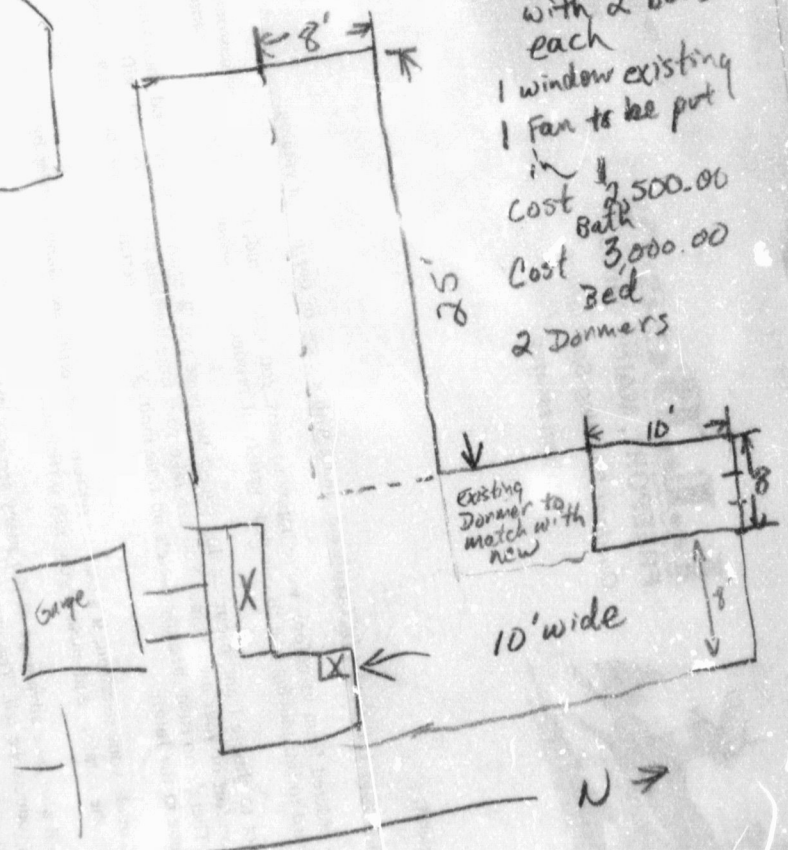 with 2
each
1 window existing
1 Fan to be put
in
Cost 2,500.00
Bath
Cost 3,000.00
Bed
2 Dormers
8'
25'
10'
8
Existing
Dormer to
match with
new
8'
10' wide
X
X
N